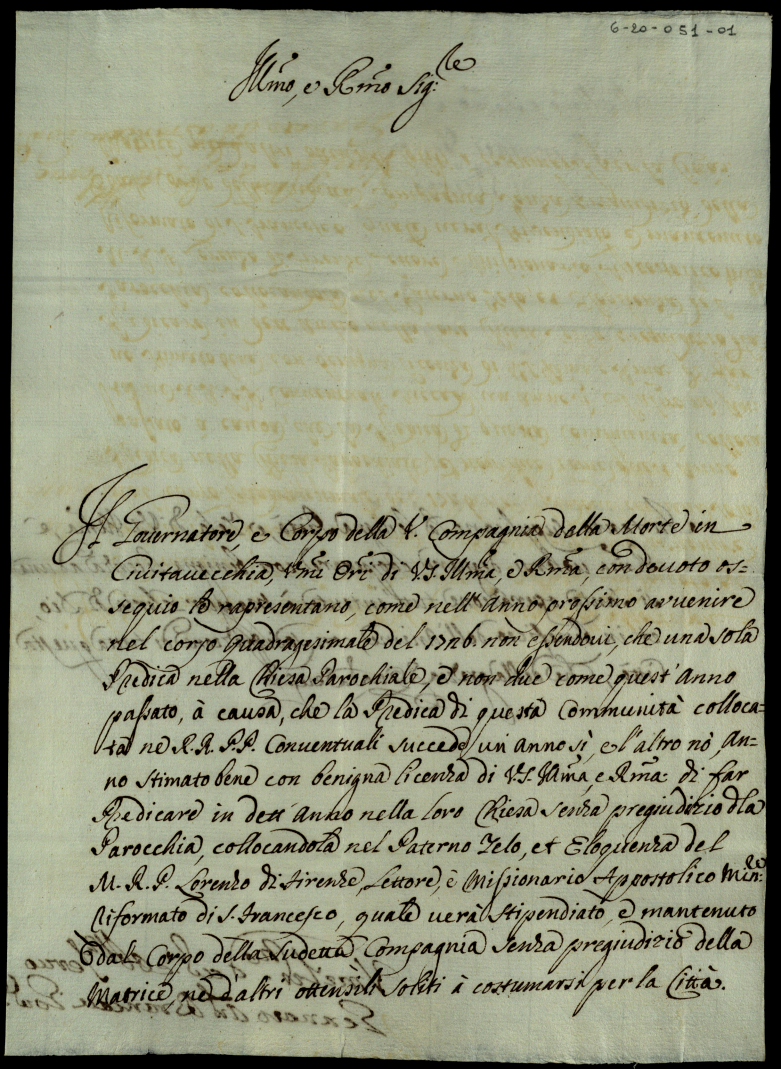 6-20-051-01
Ill.mo, e R.mo Sig.re
Il Governatore, e Corpo della V. Compagnia della Morte in
Civitavecchia, Umi Ori di V.S. Ill.ma, e R.ma, con devoto os=
sequio le rapresentano, come nell'Anno prossimo avvenire
nel corso quadragesimale del 1726. non essendovi, che una sola
Predica nella Chiesa Parochiale, e non due come quest'Anno
passato, à causa, che la Predica di questa Communità colloca=
ta ne R.R. P.P. Conventuali succede un anno sì, e l'altro nò, An=
no stimato bene con benigna licenza di V.S. Ill.ma, e R.ma di far
Predicare in dett'Anno nella loro Chiesa senza pregiudizio dla
Parocchia, collocandola nel Paterno Zelo, et Eloquenza del
M. R. P. Lorenzo di Firenze, Lettore, è Missionario Appostolico Min:re
Riformato di S. Francesco, quale verà stipendiato, e mantenuto
dal Corpo della sudetta Compagnia senza pregiudizio della
Matrice, ne d'altri ottensili soliti à costumarsi per la Città.